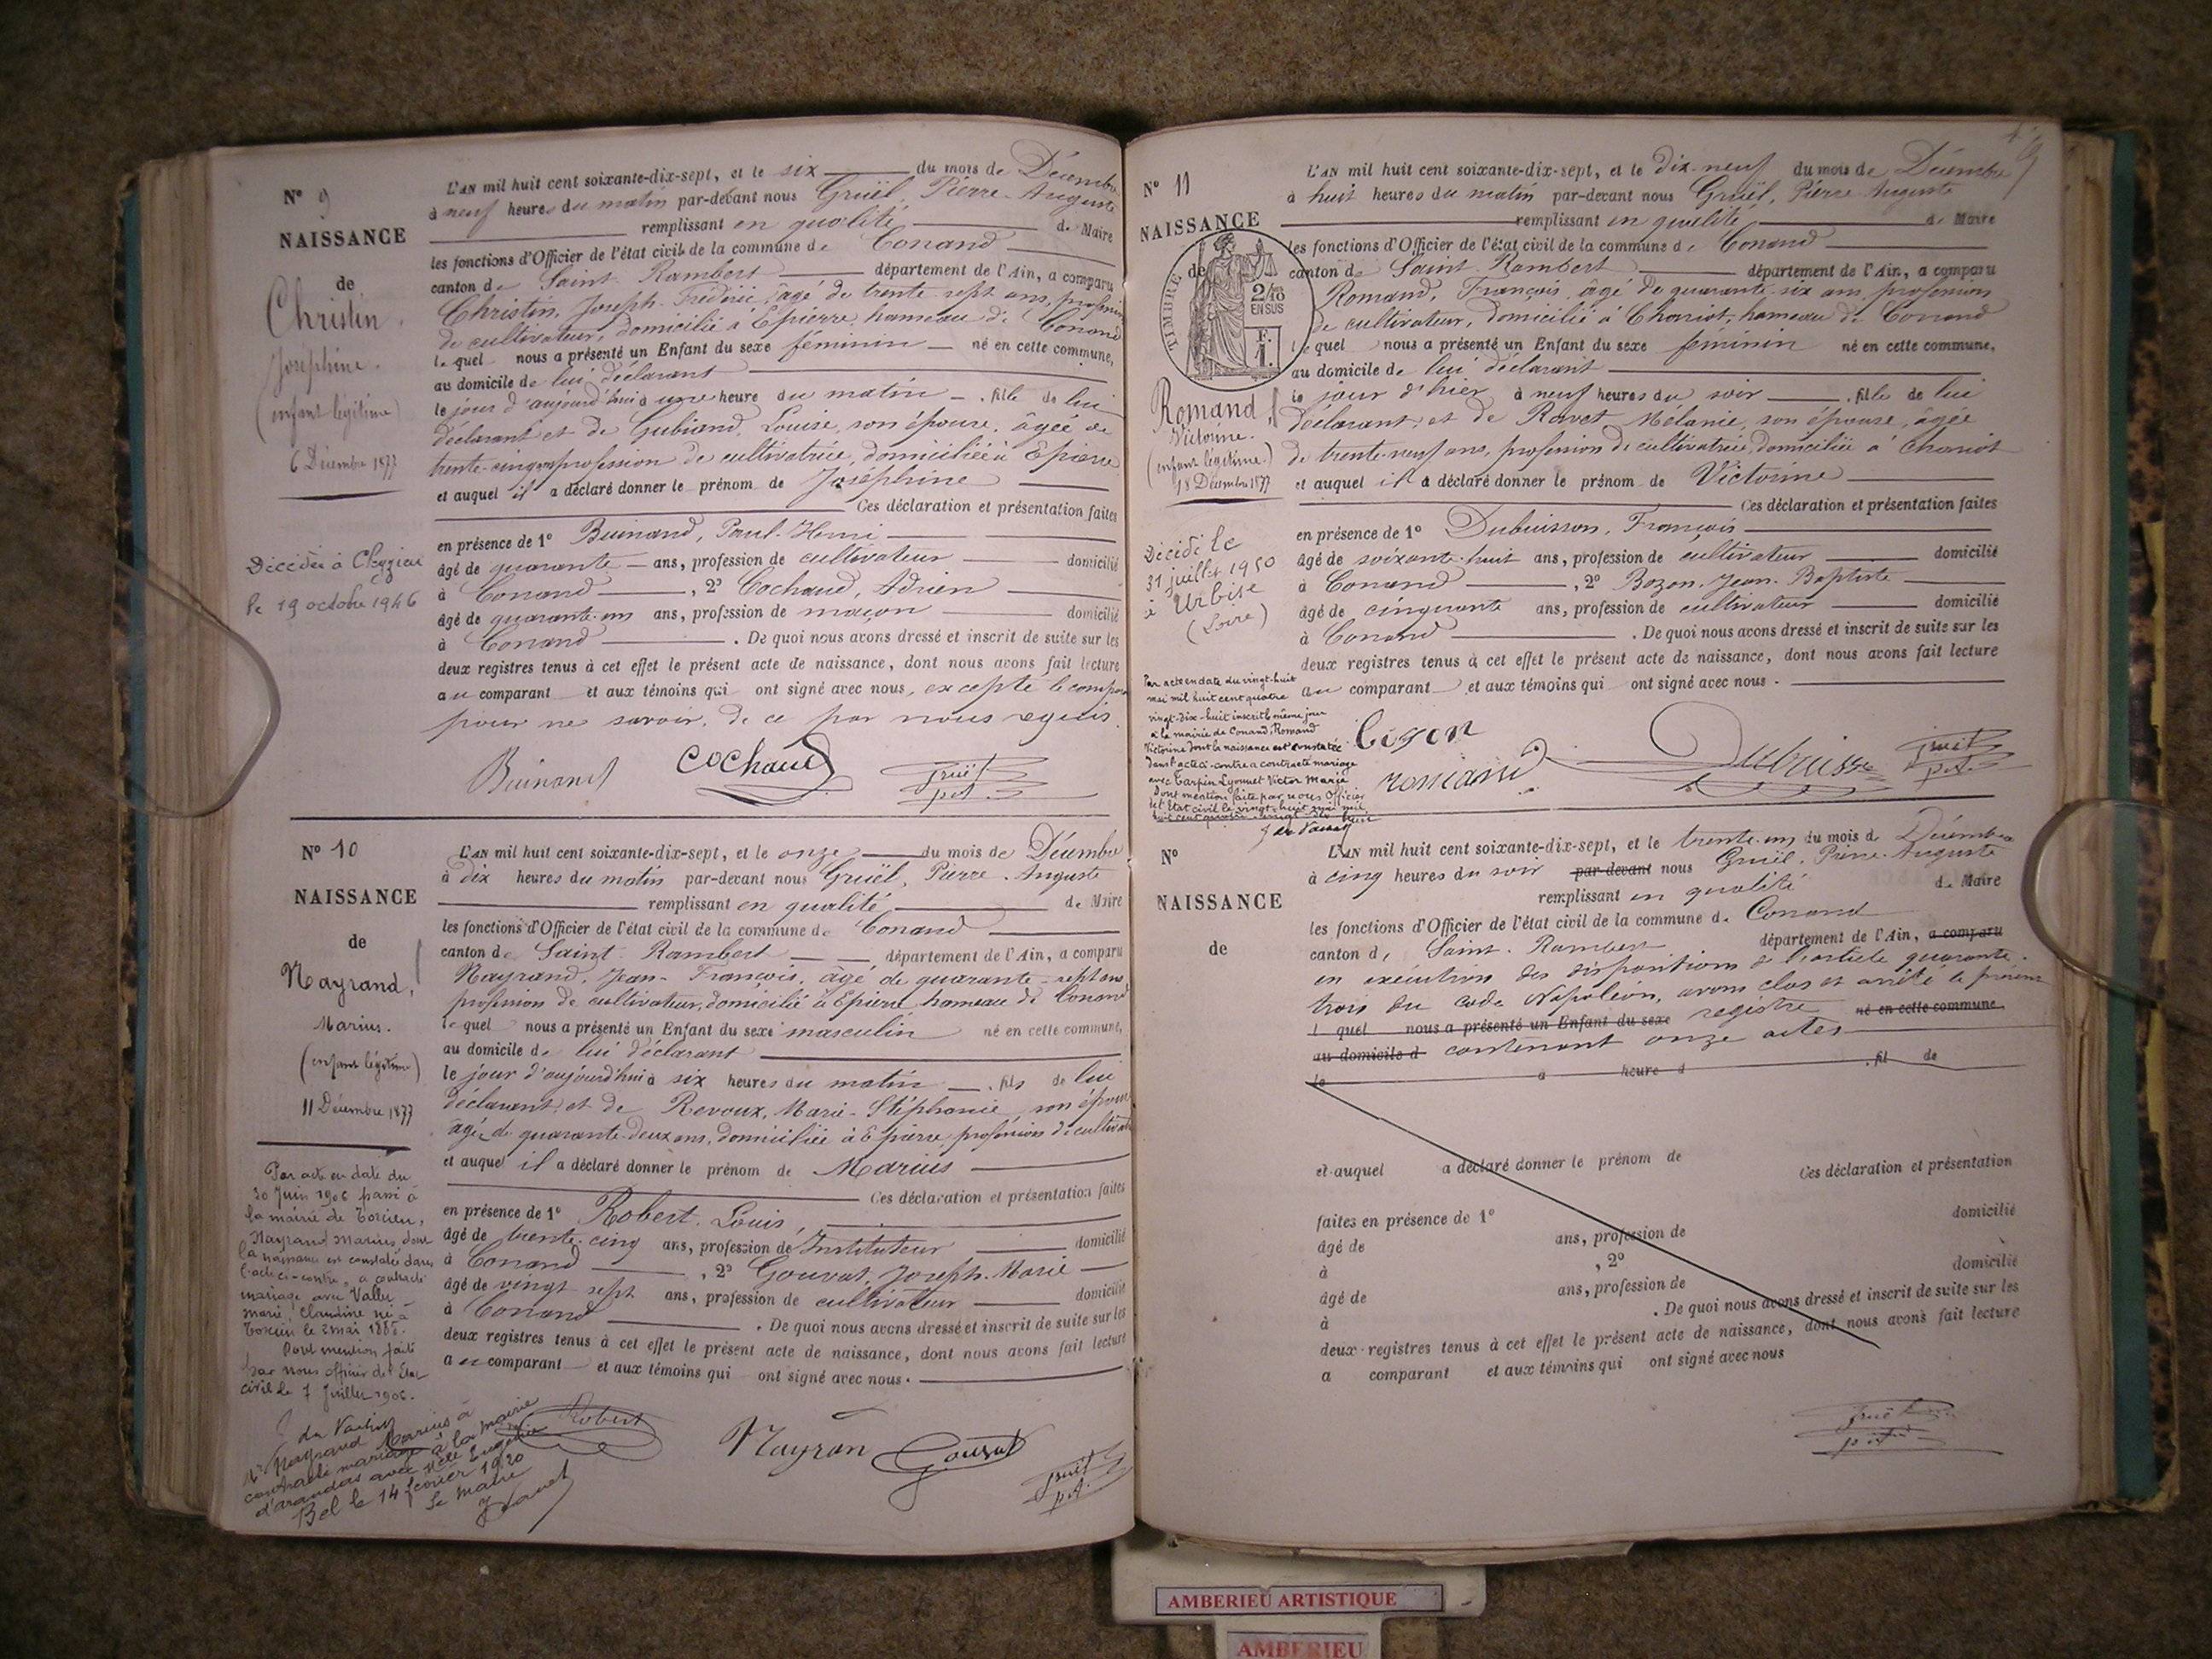 N° 9
NAISSANCE
de
Christin
Joséphine.
(enfant légitime)
6 Décembre 1877
Décédée à Cleyzieu
le 19 octobre 1946
L'AN mil huit cent soixante-dix-sept, et le six du mois de Décembre
à neuf heures du matin par-devant nous Gruël, Pierre-Auguste
remplissant en qualité de Maire
les fonctions d'Officier de l'état civil de la commune de Conand
canton de Saint-Rambert département de l'Ain, a comparu
Christin, Joseph-Frédéric, âgé de trente-sept ans, profession
de cultivateur, domicilié à Epierre, hameau de Conand
lequel nous a présenté un Enfant du sexe féminin né en cette commune,
au domicile de lui déclarant
le jour d'aujourd'hui à une heure du matin , fille de lui
déclarant et de Gubiand, Louise, son épouse, âgée de
trente-cinq ans, profession de cultivatrice, domiciliée à Epierre
et auquel il a déclaré donner le prénom de Joséphine
Ces déclaration et présentation faites
en présence de 1° Buinand, Paul-Henri
âgé de quarante ans, profession de cultivateur domicilié
à Conand , 2° Cochaud, Adrien
âgé de quarante-un ans, profession de maçon domicilié
à Conand . De quoi nous avons dressé et inscrit de suite sur les
deux registres tenus à cet effet le présent acte de naissance, dont nous avons fait lecture
au comparant et aux témoins qui ont signé avec nous, excepté le comparant
pour ne savoir, de ce par nous requis.
Buinand Cochaud Gruël
p.A.
N° 10
NAISSANCE
de
Nayrand,
Marius.
(enfant légitime)
11 Décembre 1877
Par acte en date du
30 Juin 1906 passé à
la mairie de Torcieu,
Nayrand Marius, dont
la naissance est constatée dans
l'acte ci-contre, a contracté
mariage avec Vallet
Marie, Claudine née à
Torcieu le 2 mai 1885.
Dont mention faite
par nous officier de l'Etat
civil le 7 Juillet 1906.
Mr Nayrand Marius à
contracté mariage à la mairie
d'arandas avec Melle Eugénie
Bel le 14 février 1920
Le maire
L'AN mil huit cent soixante-dix-sept, et le onze du mois de Décembre
à dix heures du matin par-devant nous Gruël, Pierre-Auguste
remplissant en qualité de Maire
les fonctions d'Officier de l'état civil de la commune de Conand
canton de Saint-Rambert département de l'Ain, a comparu
Nayrand, Jean-François, âgé de quarante-sept ans
profession de cultivateur, domicilié à Epierre, hameau de Conand
lequel nous a présenté un Enfant du sexe masculin né en cette commune,
au domicile de lui déclarant
le jour d'aujourd'hui à six heures du matin , fils de lui
déclarant, et de Revoux, Marie-Stéphanie, son épouse
âgée de quarante-deux ans, domiciliée à Epierre, profession de cultivatrice
et auquel il a déclaré donner le prénom de Marius
Ces déclaration et présentation faites
en présence de 1° Robert, Louis,
âgé de trente-cinq ans, profession de Instituteur domicilié
à Conand , 2° Gouvat, Joseph-Marie
âgé de vingt sept ans, profession de cultivateur domicilié
à Conand . De quoi nous avons dressé et inscrit de suite sur les
deux registres tenus à cet effet le présent acte de naissance, dont nous avons fait lecture
au comparant et aux témoins qui ont signé avec nous.
Robert Nayran Gouvat Gruël
p.A.
N° 11
NAISSANCE
de
TIMBRE
2/10
EN SUS
F.
1.
Romand,
Victorine.
(enfant légitime.)
18 Décembre 1877
Décédé le
31 juillet 1950
à Urbise
(Loire)
Par acte en date du vingt-huit
mai mil huit cent quatre
vingt-dix-huit inscrit le même jour
à la mairie de Conand, Romand
Victorine dont la naissance est constatée
dans l'acte ci-contre a contracté mariage
avec Tarpin Lyonnet Victor Marie
Dont mention faite par nous Officier
de l'Etat civil le vingt-huit mai mil
huit cent quatre-vingt-dix-huit
L'AN mil huit cent soixante-dix-sept, et le dix-neuf du mois de Décembre
à huit heures du matin par-devant nous Gruël, Pierre-Auguste
remplissant en qualité de Maire
les fonctions d'Officier de l'état civil de la commune de Conand
canton de Saint-Rambert département de l'Ain, a comparu
Romand, François, âgé de quarante-six ans, profession
de cultivateur, domicilié à Charioz, hameau de Conand
lequel nous a présenté un Enfant du sexe féminin né en cette commune,
au domicile de lui déclarant
le jour d'hier à neuf heures du soir , fille de lui
déclarant, et de Ravet, Mélanie, son épouse, âgée
de trente-neuf ans, profession de cultivatrice, domiciliée à Charioz
et auquel il a déclaré donner le prénom de Victorine
Ces déclaration et présentation faites
en présence de 1° Dubuisson, François
âgé de soixante-huit ans, profession de cultivateur domicilié
à Conand , 2° Bozon, Jean-Baptiste
âgé de cinquante ans, profession de cultivateur domicilié
à Conand . De quoi nous avons dressé et inscrit de suite sur les
deux registres tenus à cet effet le présent acte de naissance, dont nous avons fait lecture
au comparant et aux témoins qui ont signé avec nous.
romand Dubuisson Gruël
p.A.
N°
NAISSANCE
de
L'AN mil huit cent soixante-dix-sept, et le trente-un du mois de Décembre
à cinq heures du soir par-devant nous Gruël, Pierre-Auguste
remplissant en qualité de Maire
les fonctions d'Officier de l'état civil de la commune de Conand
canton de Saint-Rambert département de l'Ain, a comparu
en exécution des dispositions de l'article quarante-
trois du code Napoléon, avons clos et arrêté le présent
l quel nous a présenté un Enfant du sexe registre né en cette commune
au domicile d contenant onze actes
le à heure d , fil de
et auquel a déclaré donner le prénom de
Ces déclaration et présentation
faites en présence de 1°
domicilié
âgé de ans, profession de
à , 2°
domicilié
âgé de ans, profession de
à . De quoi nous avons dressé et inscrit de suite sur les
deux registres tenus à cet effet le présent acte de naissance, dont nous avons fait lecture
a comparant et aux témoins qui ont signé avec nous
Gruël
AMBERIEU ARTISTIQUE
AMBERIEU